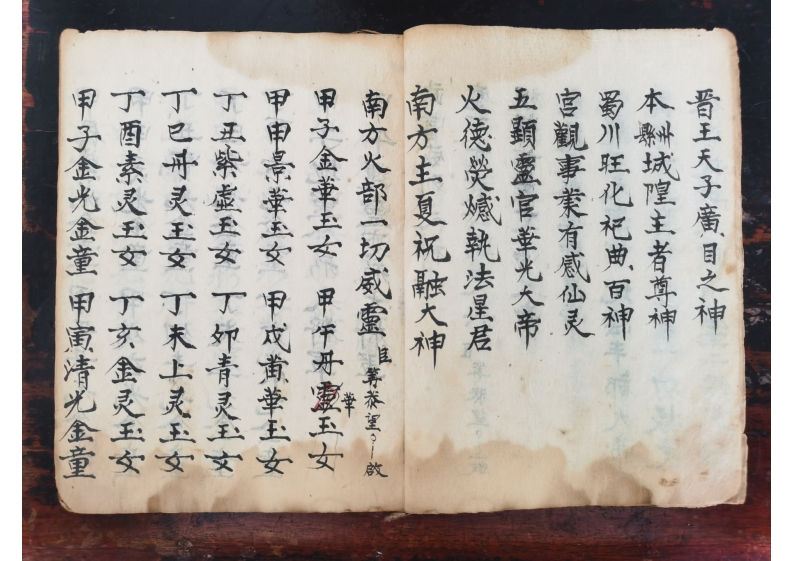 晋王天子廣目之神
本州縣城隍主者尊神
蜀川旺化祀典百神
宮觀事業有感仙灵
五顯靈官華光大帝
火德熒憾執法星君
南方主夏祝融大神
南方火部一切威靈 臣䓁恭望〻啟
甲子金華玉女 甲午丹靈華玉女
甲申景華玉女 甲戊黄華玉女
丁丑紫虛玉女 丁卯青灵玉女
丁巳丹灵玉女 丁未上灵玉女
丁酉素灵玉女 丁亥金灵玉女
甲子金光金童 甲寅清光金童